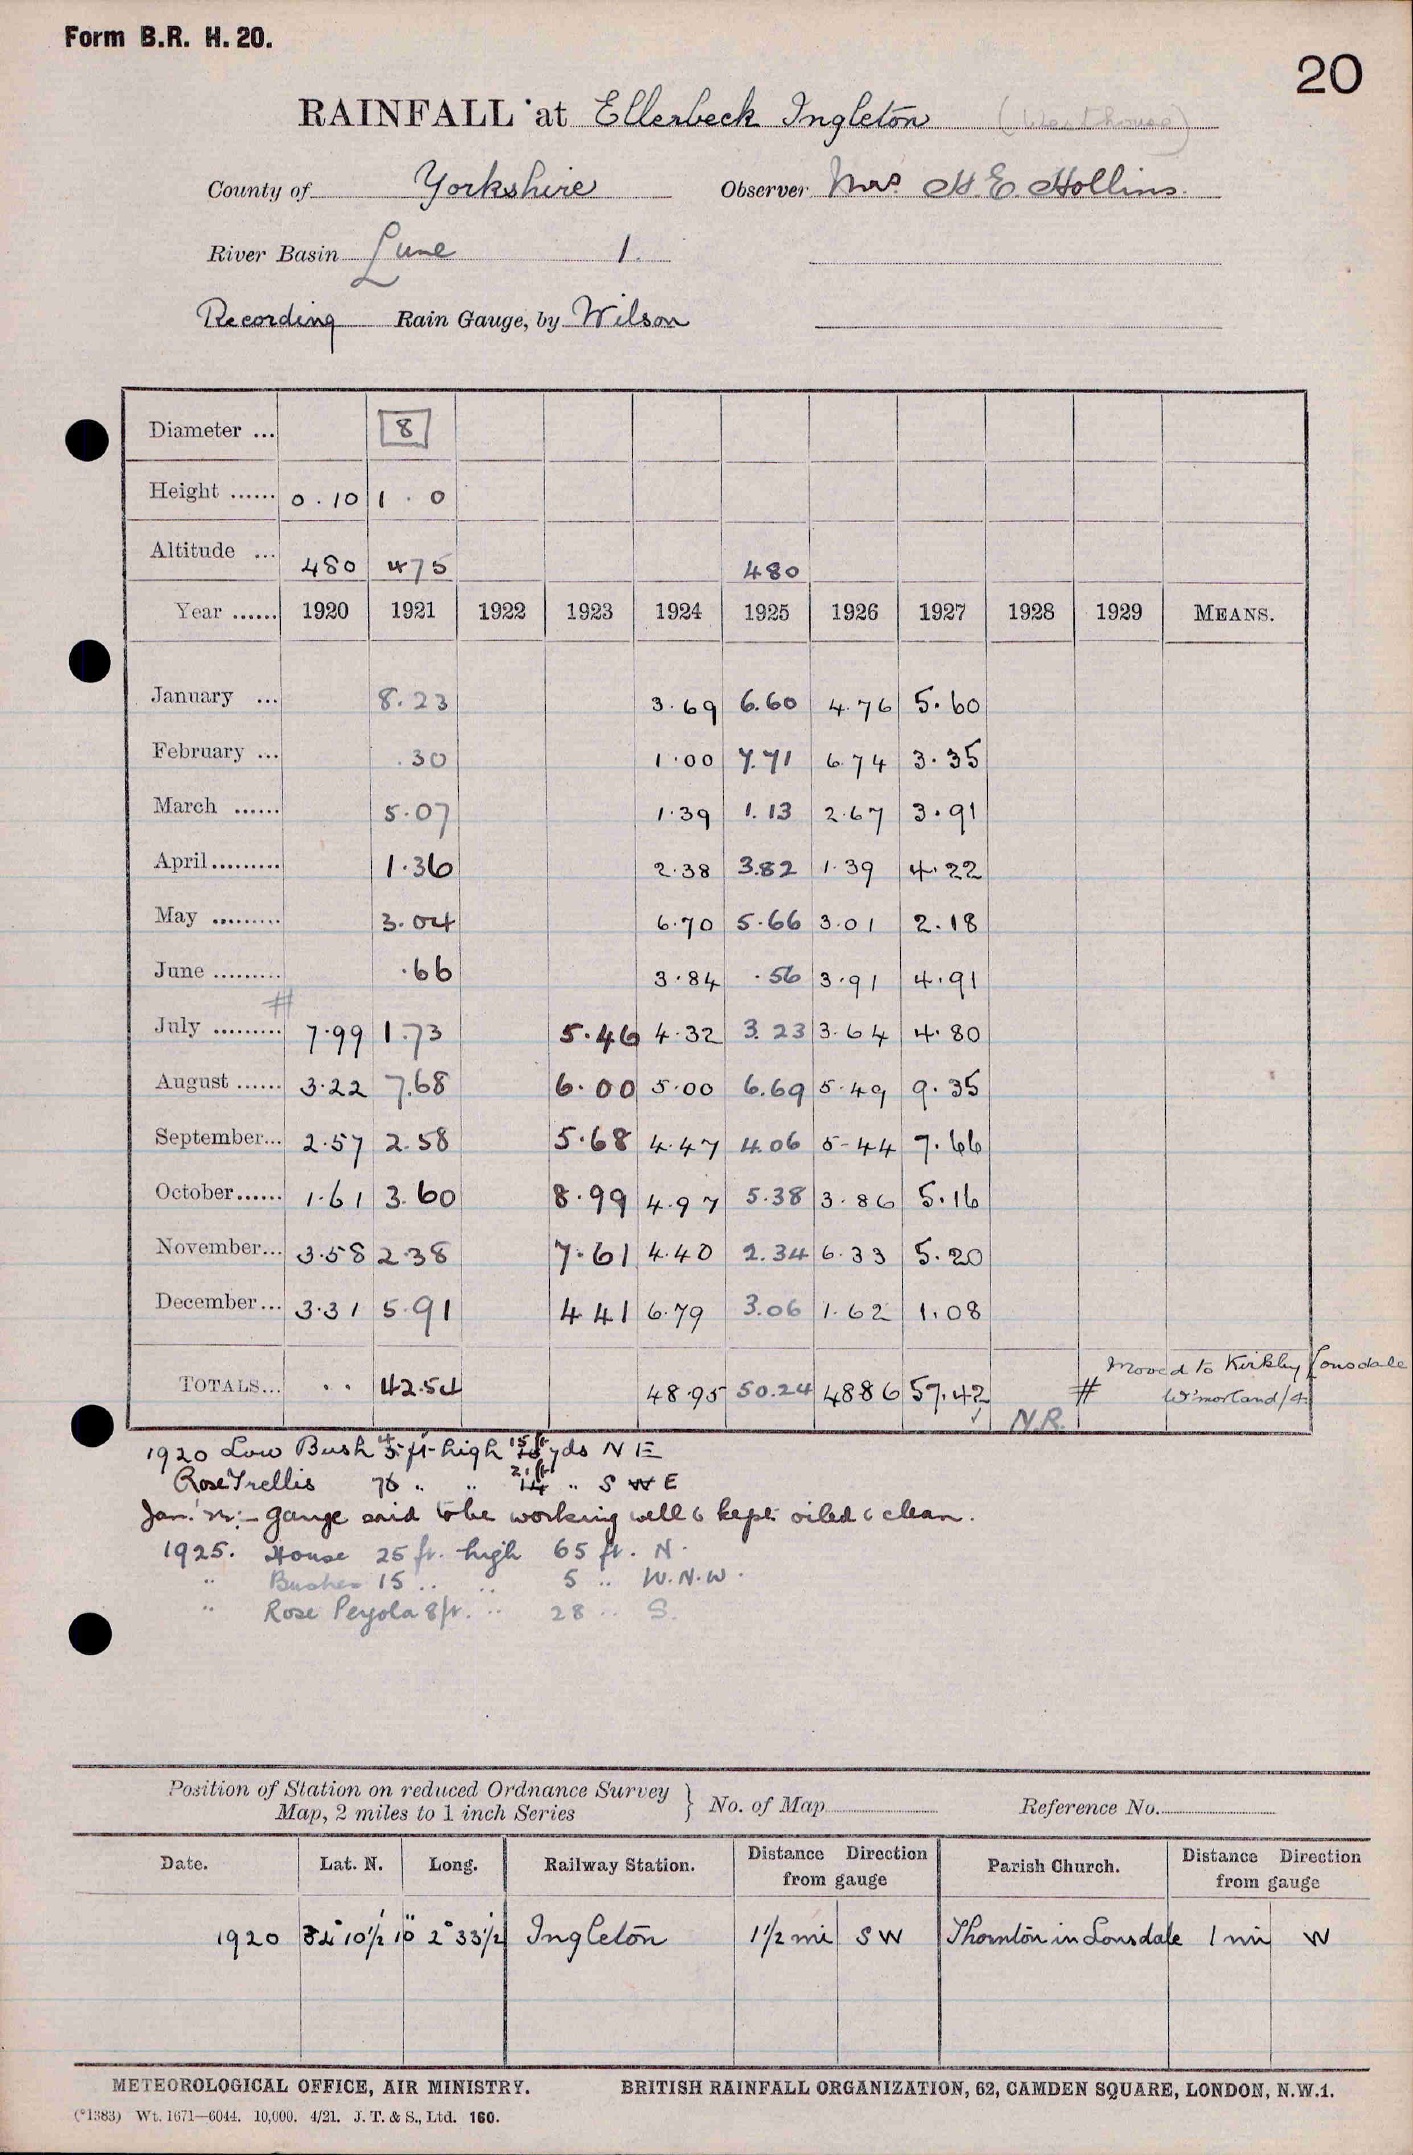 Form B.R. H. 20.
20
RAINFALL at Ellerbeck Ingleton (Westhouse)
County of Yorkshire Observer Mrs. H. E. Hollins.
River Basin Lune 1.
Recording Rain Gauge, by Wilson
Diameter ... 8
Height ...... 0.10 1.0
Altitude ... 480 475 480
Year ...... 1920 1921 1922 1923 1924 1925 1926 1927 1928 1929 MEANS.
January ... 8.23 3.69 6.60 4.76 5.60
February ... .30 1.00 7.71 6.74 3.35
March ...... 5.07 1.39 1.13 2.67 3.91
April......... 1.36 2.38 3.82 1.39 4.22
May ......... 3.04 6.70 5.66 3.01 2.18
June ......... .66 3.84 .56 3.91 4.91
#
July ......... 7.99 1.73 5.46 4.32 3.23 3.64 4.80
August ...... 3.22 7.68 6.00 5.00 6.69 5.49 9.35
September... 2.57 2.58 5.68 4.47 4.06 5.44 7.66
October...... 1.61 3.60 8.99 4.97 5.38 3.86 5.16
November... 3.58 2.38 7.61 4.40 2.34 6.33 5.20
December... 3.31 5.91 4 41 6.79 3.06 1.62 1.08
TOTALS... .. 42.54 48.95 50.24 48 86 57.42 N.R.
# Moved to Kirkby Lonsdale
W'morland/4
1920 Low Bush ft high 15 ft yds N E
Rose Trellis " " 21 ft " S W E
Jan. '22:- gauge said to be working well & kept oiled & clean.
1925. House 25 ft. high 65 ft. N.
" Bushes 15 .. .. 5 .. W.N.W.
" Rose Pergola 8 ft. .. 28 .. S.
Position of Station on reduced Ordnance Survey
Map, 2 miles to 1 inch Series } No. of Map Reference No.
Date. Lat. N. Long. Railway Station. Distance Direction from gauge Parish Church. Distance Direction from gauge
1920 54° 10½' 10" 2° 33½' Ingleton 1½ mi SW Thornton in Lonsdale 1 mi W
METEOROLOGICAL OFFICE, AIR MINISTRY. BRITISH RAINFALL ORGANIZATION, 62, CAMDEN SQUARE, LONDON, N.W.1.
(*1383) Wt. 1671—6044. 10,000. 4/21. J. T. & S., Ltd. 160.